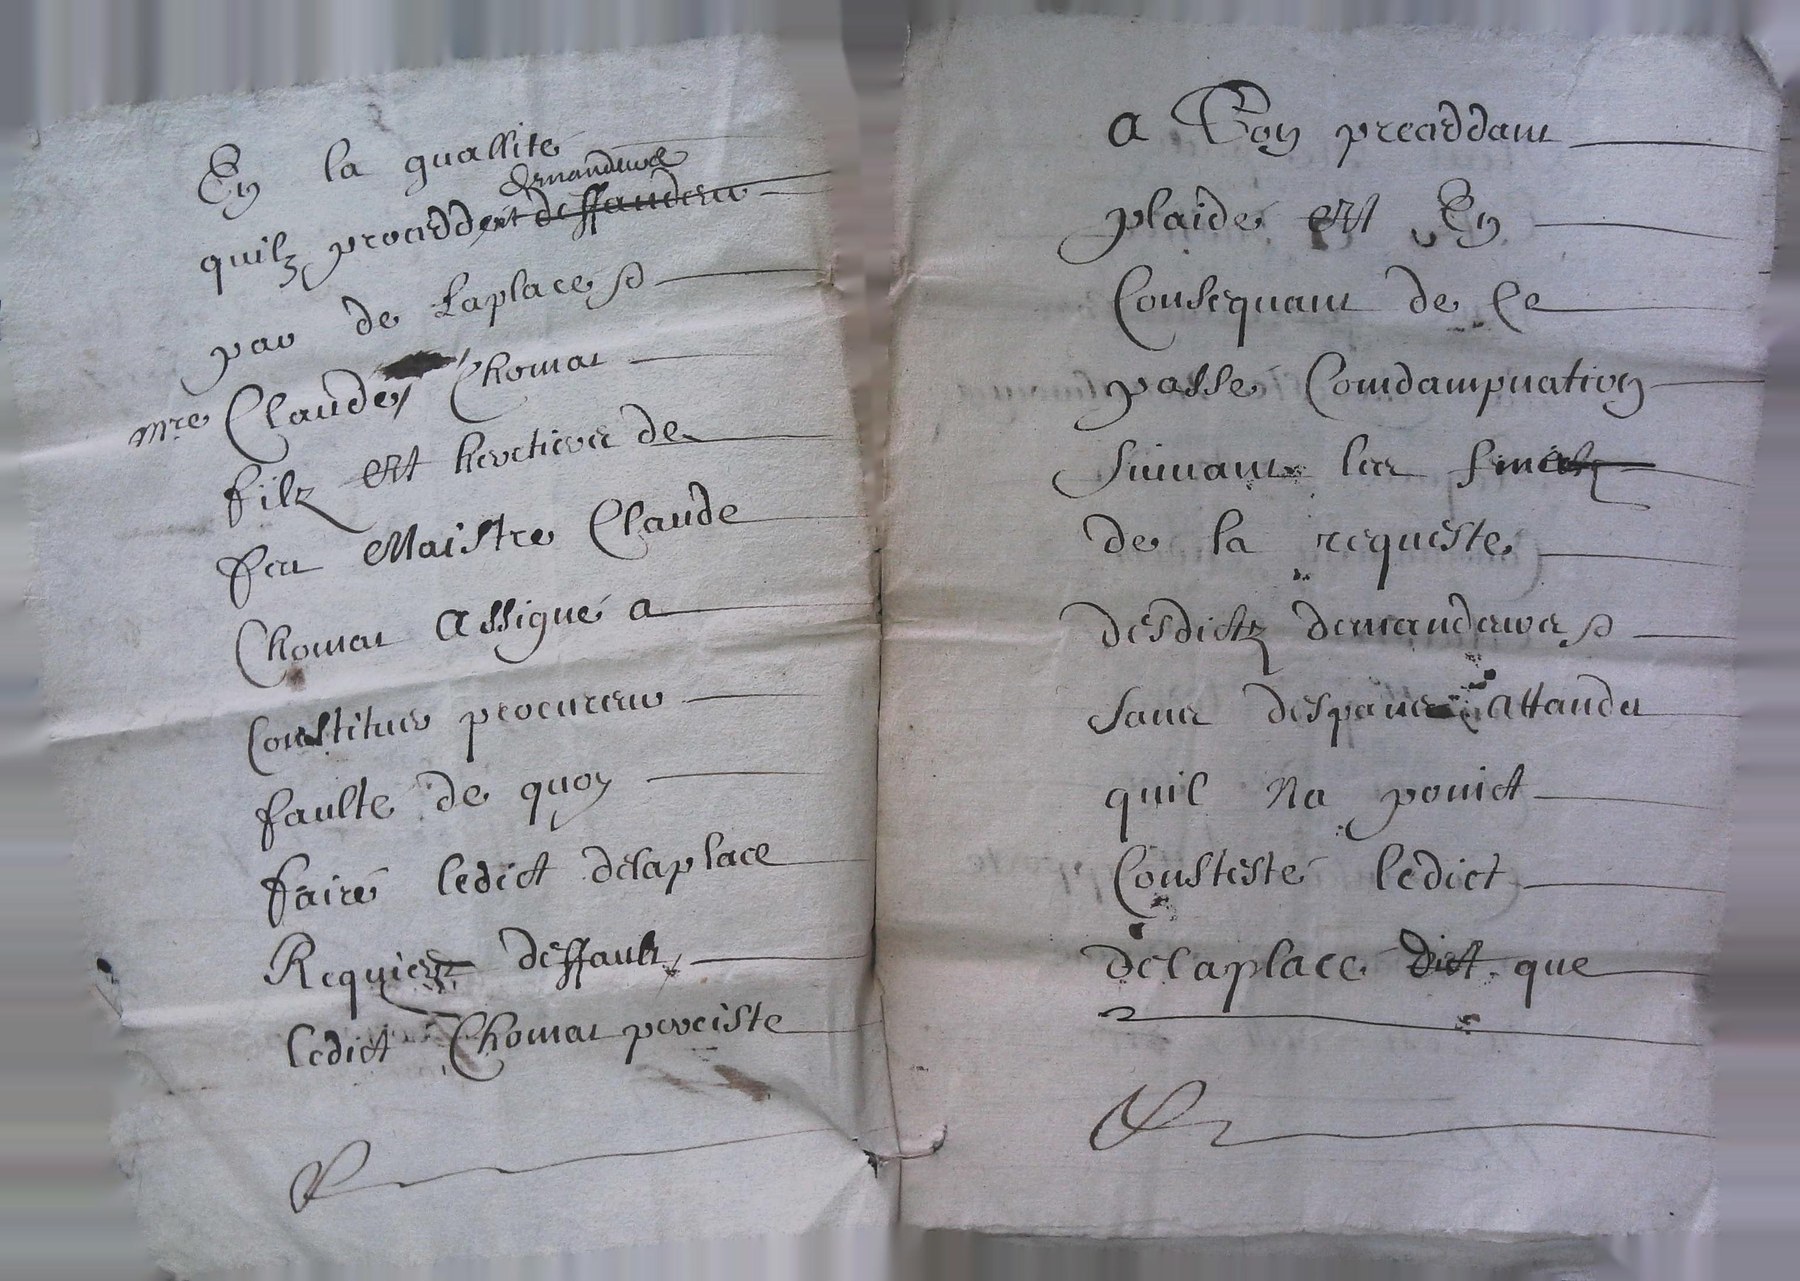 En la quallite
demandeurs
quilz proceddent deffandeur
par de Laplace
mre Claude Chomat
filz et herettier de
feu Maistre Claude
Chomat assigné a
Constituer procureur
faulte de quoy
faire ledict delaplace
Requiert deffault
ledict Chomat perciste
a son preceddant
plaidé et En
Consequant de Ce
passe Comdampnation
suivant les fins
de la requeste
desdictz demandeurs
sans despans attandu
quil Na point
Constesté ledict
delaplace dict que